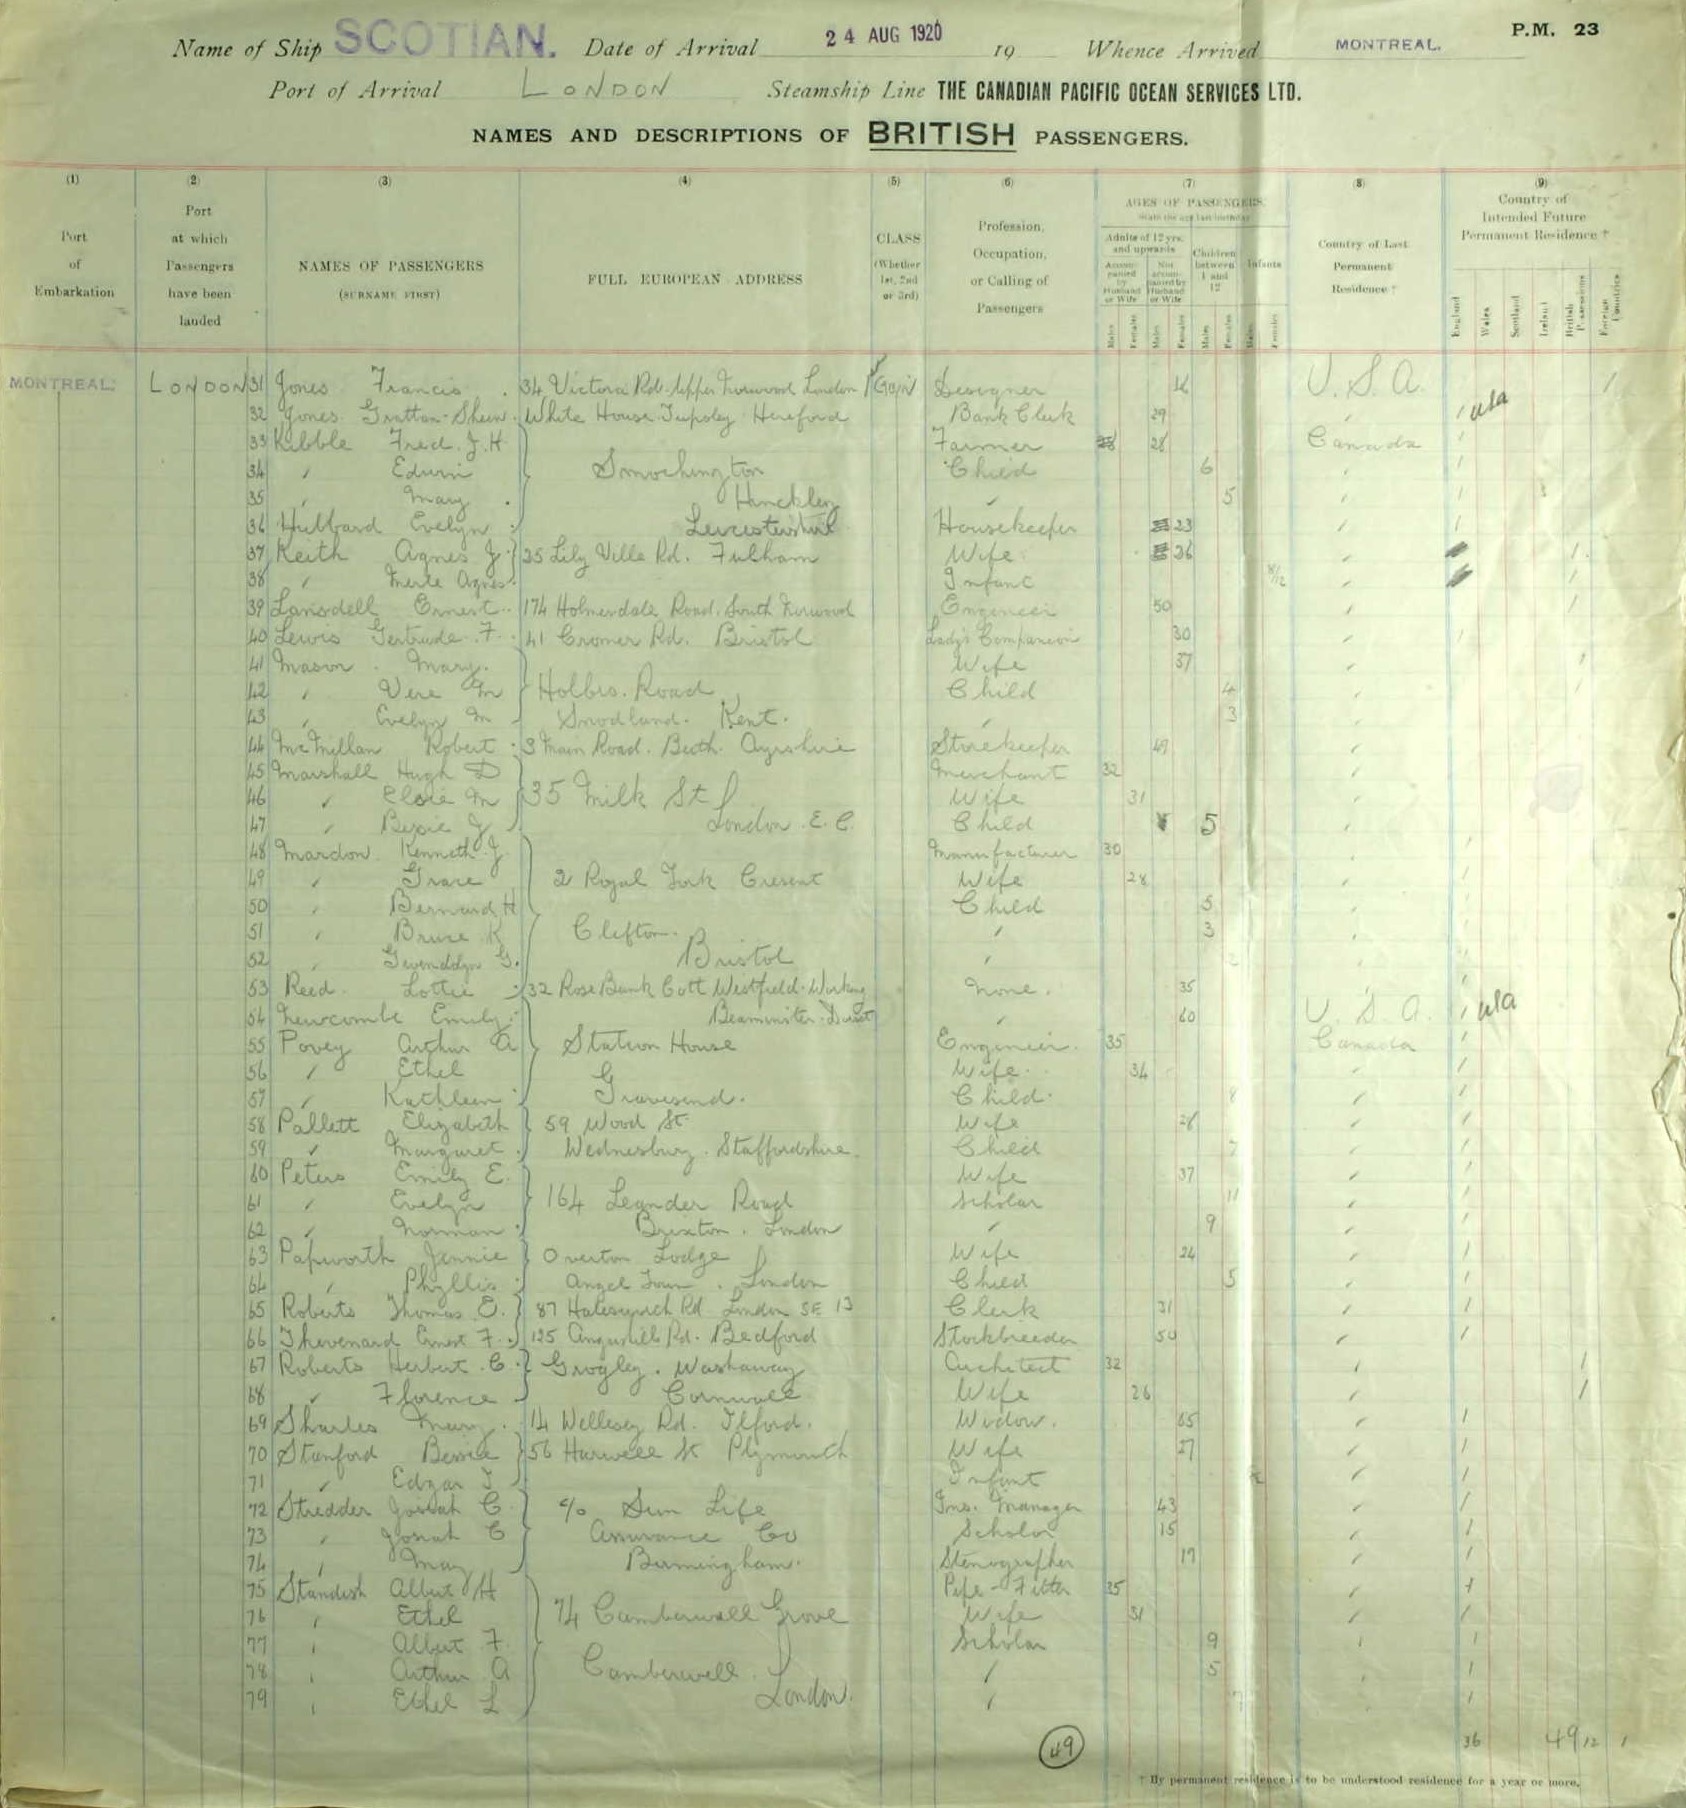 P.M. 23
Name of Ship SCOTIAN. Date of Arrival 24 AUG 1920 19 Whence Arrived MONTREAL.
Port of Arrival LONDON Steamship Line THE CANADIAN PACIFIC OCEAN SERVICES LTD.
NAMES AND DESCRIPTIONS OF BRITISH PASSENGERS.
(1) (2) (3) (4) (5) (6) (7) (8) (9)
Port of Embarkation
Port at which Passengers have been landed
NAMES OF PASSENGERS (SURNAME FIRST)
FULL EUROPEAN ADDRESS
CLASS (Whether 1st, 2nd or 3rd)
Profession, Occupation, or Calling of Passengers
AGES OF PASSENGERS
Adults of 12 yrs. and upwards
Accompanied by Husband or Wife
Not accompanied by Husband or Wife
Children between 1 and 12
Infants
Males Females Males Females Males Females Males Females
Country of Last Permanent Residence †
Country of Intended Future Permanent Residence †
England Wales Scotland Ireland British Possessions Foreign Countries
MONTREAL. LONDON 31 Jones Francis 34 Victoria Rd. Upper Norwood London Designer U.S.A.
32 Jones White House Tupsley Hereford Bank Clerk 29 " usa
33 Kibble Fred. J.H. Farmer 28 Canada
34 " Edwin Child 6 "
35 " Mary Hinckley " 5 "
36 Hubbard Evelyn Leicestershire Housekeeper 23 "
37 Keith Agnes J 35 Lily Ville Rd. Fulham Wife 26 "
38 " Merle Agnes Infant 8/12 "
39 Lansdell Ernest 174 Holmesdale Road. South Norwood Engineer 50 "
40 Lewis Gertrude F. 41 Cromer Rd. Bristol Lady's Companion 30 "
41 Mason Mary Wife 37 "
42 " Vera M Road Child 4 "
43 " Evelyn M Snodland. Kent. " 3 "
44 McMillan Robert 3 Main Road. Beith. Ayrshire Storekeeper 49 "
45 Marshall Hugh D Merchant 32 "
46 " Elsie M 35 Milk St Wife 31 "
47 " J London. E.C. Child 5 "
48 Mardon Kenneth J. Manufacturer 30 "
49 " Grace 2 Royal York Cresent Wife 28 "
50 " Bernard H Child 5 "
51 " Bruce K Clifton. " 3 "
52 " Gwenddyn G. Bristol " "
53 Reed Lottie 32 Rose Bank Cott Westfield. None. 35 "
54 Newcombe Emily Beaminster. " 60 U.S.A. usa
55 Povey Arthur A Station House Engineer 35 Canada
56 " Ethel Wife 34 "
57 " Kathleen Gravesend. Child 8 "
58 Pallett Elizabeth 59 Wood St Wife 28 "
59 " Margaret Wednesbury. Staffordshire. Child 7 "
60 Peters Emily E. Wife 37 "
61 " Evelyn 164 Leander Road Scholar 11 "
62 " Norman Brixton. London " 9 "
63 Papworth Jennie Overton Lodge Wife 24 "
64 " Phyllis Angel Town. London Child 5 "
65 Roberts Thomas E. 87 Rd London SE 13 Clerk 31 "
66 Thevenard Ernest F. 125 Rd. Bedford Stockbreeder 50 "
67 Roberts Herbert C. Grogley. Washaway Architect 32 "
68 " Florence Cornwall Wife 26 "
69 Sharles Mary 14 Wellesey Rd. Ilford. Widow. 65 "
70 Stanford Bessie 56 Harwell St Plymouth Wife 27 "
71 " Edgar J Infant "
72 Stredder Josiah C c/o Sun Life Ins. Manager 43 "
73 " Josiah C Assurance Co Scholar 15 "
74 " May Birmingham. Stenographer 19 "
75 Standish Albert H Pipe-Fitter 35 "
76 " Ethel 74 Camberwell Grove Wife 31 "
77 " Albert F. Scholar 9 "
78 " Arthur A Camberwell. " 5 "
79 " Ethel L London. " 7
49 36 49 12 1
† By permanent residence is to be understood residence for a year or more.